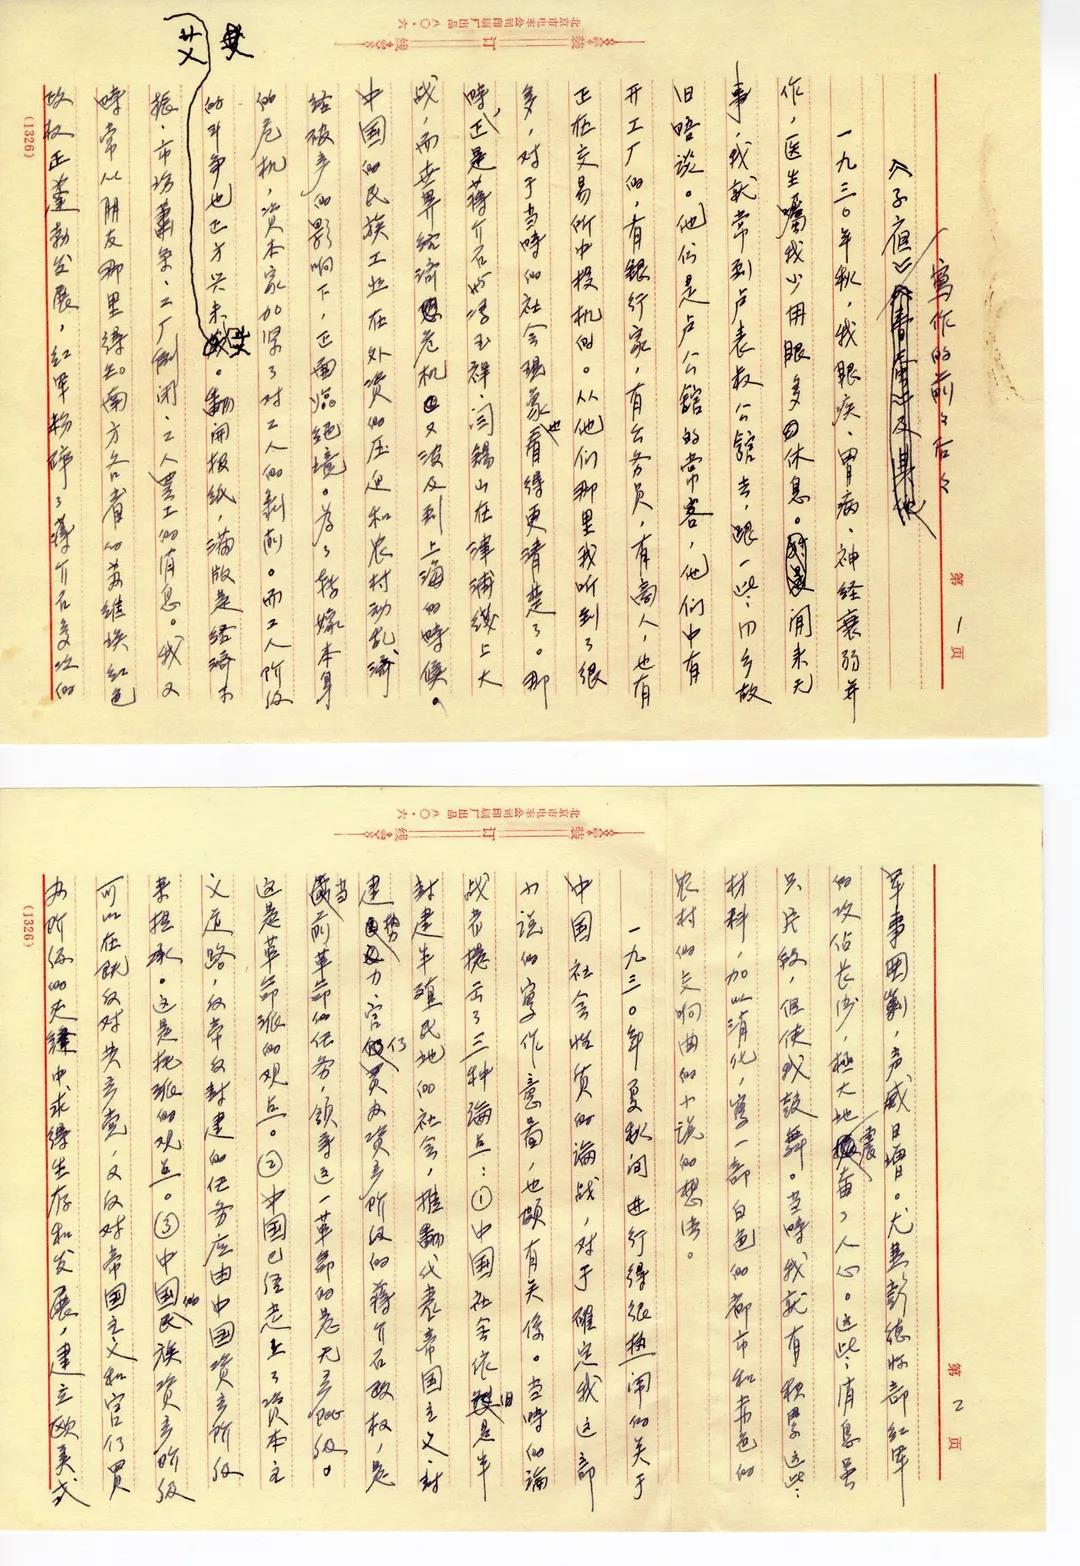 北京市电车公司印刷厂出品 八〇·六
装订线
第 1 页
《子夜》写作的前前后后
一九三〇年秋，我眼疾、胃病、神经衰弱并
作，医生嘱我少用眼多休息。闲来无
事，我就常到卢表叔公馆去，跟一些同乡故
旧晤谈。他们是卢公馆的常客，他们中有
开工厂的，有银行家，有公务员，有商人，也有
正在交易所中投机的。从他们那里我听到了很
多，对于当时的社会现象也看得更清楚了。那
时正是蒋介石与冯玉祥、阎锡山在津浦线上大
战，而世界经济危机又波及到上海的时候。
中国的民族工业在外资的压迫和农村动乱、
经济破产的影响下，正面临绝境。为了转嫁本身
的危机，资本家加紧了对工人的剥削。而工人阶级
的斗争也正方兴未艾。翻开报纸，满版是经济不
振、市场萧条、工厂倒闭、工人罢工的消息。我又
时常从朋友那里得知南方各省的苏维埃红色
政权正蓬勃发展，红军粉碎了蒋介石多次的
艾
(1326)
北京市电车公司印刷厂出品 八〇·六
装订线
第 2 页
军事围剿，声威日增。尤其彭德怀部红军
的攻占长沙，极大地震奋了人心。这些消息虽
只片段，但使我鼓舞。当时我就有积累这些
材料，加以消化，写一部白色的都市和赤色的
农村的交响曲的小说的想法。
一九三〇年夏秋间进行得很热闹的关于
中国社会性质的论战，对于确定我这部
小说的写作意图，也颇有关系。当时的论
战者提出了三种论点：①中国社会依旧是半
封建半殖民地的社会，推翻代表帝国主义、封
建势力、官僚买办资产阶级的蒋介石政权，是
当前革命的任务，领导这一革命的是无产阶级。
这是革命派的观点。②中国已经走上了资本主
义道路，反帝反封建的任务应由中国资产阶级
来担承。这是托派的观点。③中国的民族资产阶级
可以在既反对共产党，又反对帝国主义和官僚买
办阶级的夹缝中求得生存和发展，建立欧美式
(1326)